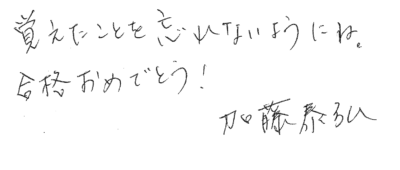 覚えたことを忘れないようにね。
合格おめでとう！
加藤泰弘